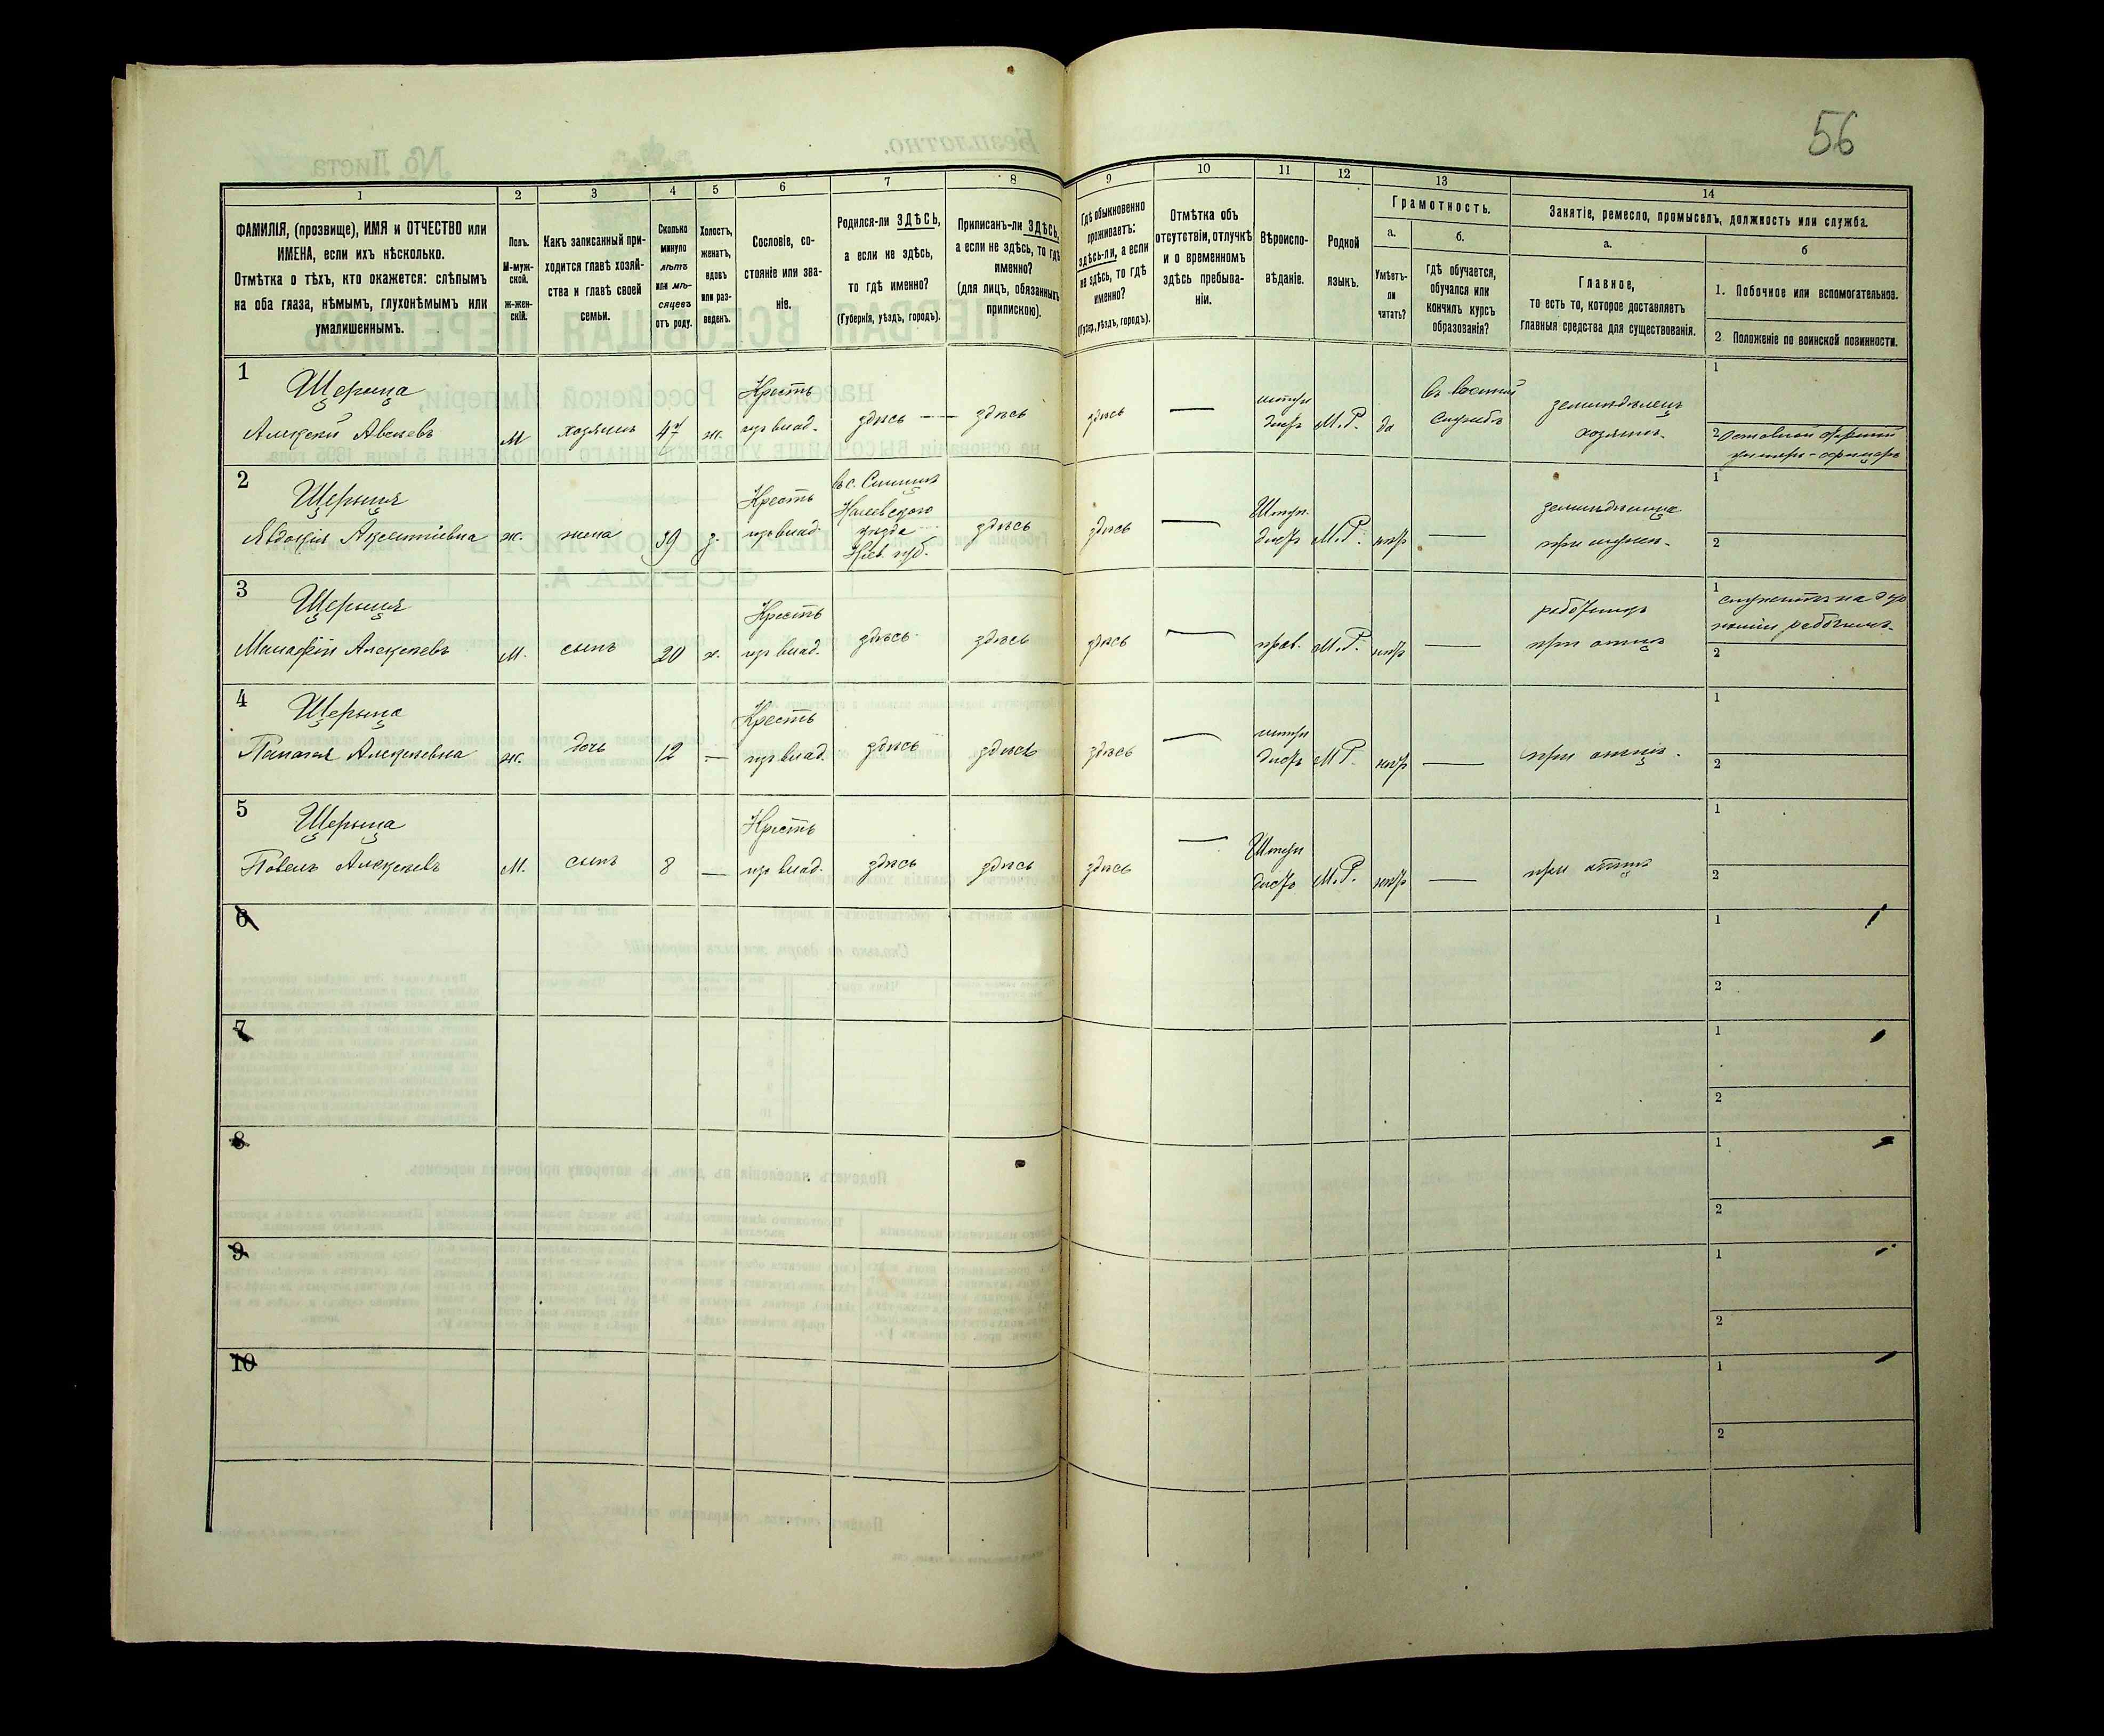 56
1
2
3
4
5
6
7
8
9
10
11
12
13
14
ФАМИЛІЯ, (прозвище), ИМЯ и ОТЧЕСТВО или
ИМЕНА, если ихъ нѣсколько.
Отмѣтка о тѣхъ, кто окажется: слѣпымъ
на оба глаза, нѣмымъ, глухонѣмымъ или
умалишеннымъ.
Полъ.
М-муж-
ской.
ж-жен-
скій.
Какъ записанный при-
ходится главѣ хозяй-
ства и главѣ своей
семьи.
Сколько
минуло
лѣтъ
или мѣ-
сяцевъ
отъ роду.
Холостъ,
женатъ,
вдовъ
или раз-
веденъ.
Сословіе, со-
стояніе или зва-
ніе.
Родился-ли ЗДѢСЬ,
а если не здѣсь,
то гдѣ именно?
(Губернія, уѣздъ, городъ).
Приписанъ-ли ЗДѢСЬ,
а если не здѣсь, то гдѣ
именно?
(для лицъ, обязанныхъ
припискою).
Гдѣ обыкновенно
проживаетъ:
здѣсь-ли, а если
не здѣсь, то гдѣ
именно?
(Губер., уѣздъ, городъ).
Отмѣтка объ
отсутствіи, отлучкѣ
и о временномъ
здѣсь пребыва-
ніи.
Вѣроиспо-
вѣданіе.
Родной
языкъ.
Грамотность.
а.
Умѣетъ-
ли
читать?
б.
гдѣ обучается,
обучался или
кончилъ курсъ
образованія?
Занятіе, ремесло, промыселъ, должность или служба.
а.
Главное,
то есть то, которое доставляетъ
главныя средства для существованія.
б
1. Побочное или вспомогательное.
2. Положеніе по воинской повинности.
1
Щерица
Алексей Авсеевъ
М
хозяинъ
47
ж.
Крестъ
изъ влад.
здѣсь
здѣсь
здѣсь
—
штун
дистъ
М.Р.
да
въ военной
службѣ
земледѣлецъ
хозяинъ.
1
2
унтеръ-офицеръ
2
Щерица
Явдокія
ж.
жена
39
з.
Крестъ
изъ влад.
въ с.
уѣзда
Кіев. губ.
здѣсь
здѣсь
—
Штун
дистъ
М.Р.
нѣтъ
—
при мужѣ.
1
2
3
Щерица
Алексѣевъ
М.
сынъ
20
х.
Крестъ
изъ влад.
здѣсь
здѣсь
здѣсь
—
прав.
М.Р.
нѣтъ
—
при отцѣ
1
рабочимъ.
2
4
Щерица
Алексѣевна
ж.
дочь
12
—
Крестъ
изъ влад.
здѣсь
здѣсь
здѣсь
—
штун
дистъ
МР.
нѣтъ
—
при отцѣ.
1
2
5
Щерица
Павелъ Алексѣевъ
М.
сынъ
8
—
Крестъ
изъ влад.
здѣсь
здѣсь
здѣсь
—
Штун
дистъ
М.Р.
нѣтъ
—
при отцѣ
1
2
6
1
2
7
1
2
8
1
2
9
1
2
10
1
2